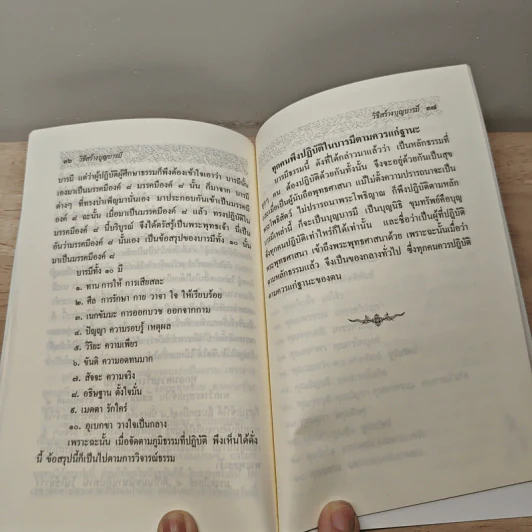 ๓๖ วิธีสร้างบุญบารมี
บารมี แต่ว่าผู้ปฏิบัติผู้ศึกษาธรรมก็พึงต้องเข้าใจเอาว่า บารมีนั้น
เองมาเป็นมรรคมีองค์ ๘ มรรคมีองค์ ๘ นั้น ก็มาจาก บารมี
ต่างๆ ที่ทรงบำเพ็ญมานั่นเอง มาประกอบกันเข้าเป็นมรรคมี
องค์ ๘ ฉะนั้น เมื่อมาเป็นมรรคมีองค์ ๘ แล้ว ทรงปฏิบัติใน
มรรคมีองค์ ๘ นี้บริบูรณ์ จึงได้ตรัสรู้เป็นพระพุทธเจ้า นี่เป็น
อันว่ามรรคมีองค์ ๘ นั้นเอง เป็นข้อสรุปของบารมีทั้ง ๑๐ นั้น
มาเป็นมรรคมีองค์ ๘
บารมีทั้ง ๑๐ มี
๑. ทาน การให้ การเสียสละ
๒. ศีล การรักษา กาย วาจา ใจ ให้เรียบร้อย
๓. เนกขัมมะ การออกบวช ออกจากกาม
๔. ปัญญา ความรอบรู้ เหตุผล
๕. วิริยะ ความเพียร
๖. ขันติ ความอดทนมาก
๗. สัจจะ ความจริง
๘. อธิษฐาน ตั้งใจมั่น
๙. เมตตา รักใคร่
๑๐. อุเบกขา วางใจเป็นกลาง
เพราะฉะนั้น เมื่อจัดตามภูมิธรรมที่ปฏิบัติ พึงเห็นได้ดั่ง
นี้ ข้อสรุปนี้ก็เป็นไปตามการวิจารณ์ธรรม
วิธีสร้างบุญบารมี ๓๗
ทุกคนพึงปฏิบัติในบารมีตามควรแก่ฐานะ
บารมีธรรมนี้ ดังที่ได้กล่าวมาแล้วว่า เป็นหลักธรรมที่
ทุกๆ คน ต้องปฏิบัติด้วยกันทั้งนั้น จึงจะอยู่ด้วยกันเป็นสุข
และเมื่อเป็นผู้นับถือพุทธศาสนา แม้ไม่ตั้งความปรารถนาจะเป็น
พระโพธิสัตว์ ไม่ปรารถนาพระโพธิญาณ ก็พึงปฏิบัติตามหลัก
บารมีเหล่านี้ ก็จะเป็นบุญบารมี เป็นบุญนิธิ ขุมทรัพย์คือบุญ
ซึ่งทุกคนปฏิบัติเท่าไหร่ก็ได้เท่านั้น และชื่อว่าเป็นผู้ที่ปฏิบัติ
ตามพระพุทธเจ้า เข้าถึงพระพุทธศาสนาด้วย เพราะฉะนั้นเมื่อว่า
ตามหลักธรรมแล้ว จึงเป็นของกลางทั่วไป ซึ่งทุกคนควรปฏิบัติ
ตามควรแก่ฐานะของตน